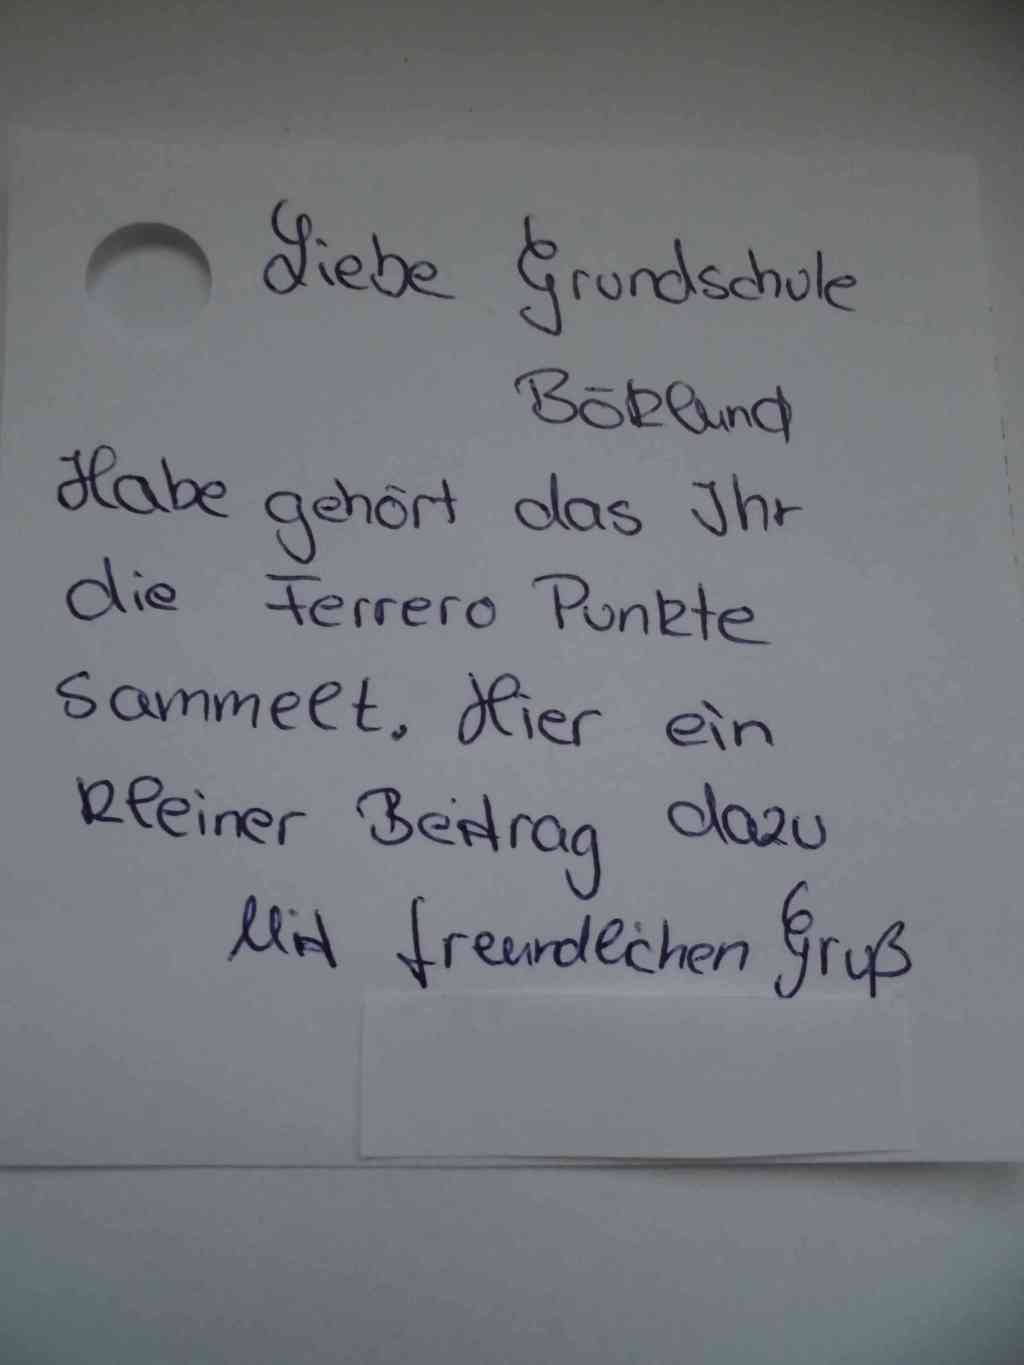 Liebe Grundschule
Böklund
Habe gehört das Ihr
die Ferrero Punkte
sammelt. Hier ein
kleiner Beitrag dazu
Mit freundlichen Gruß